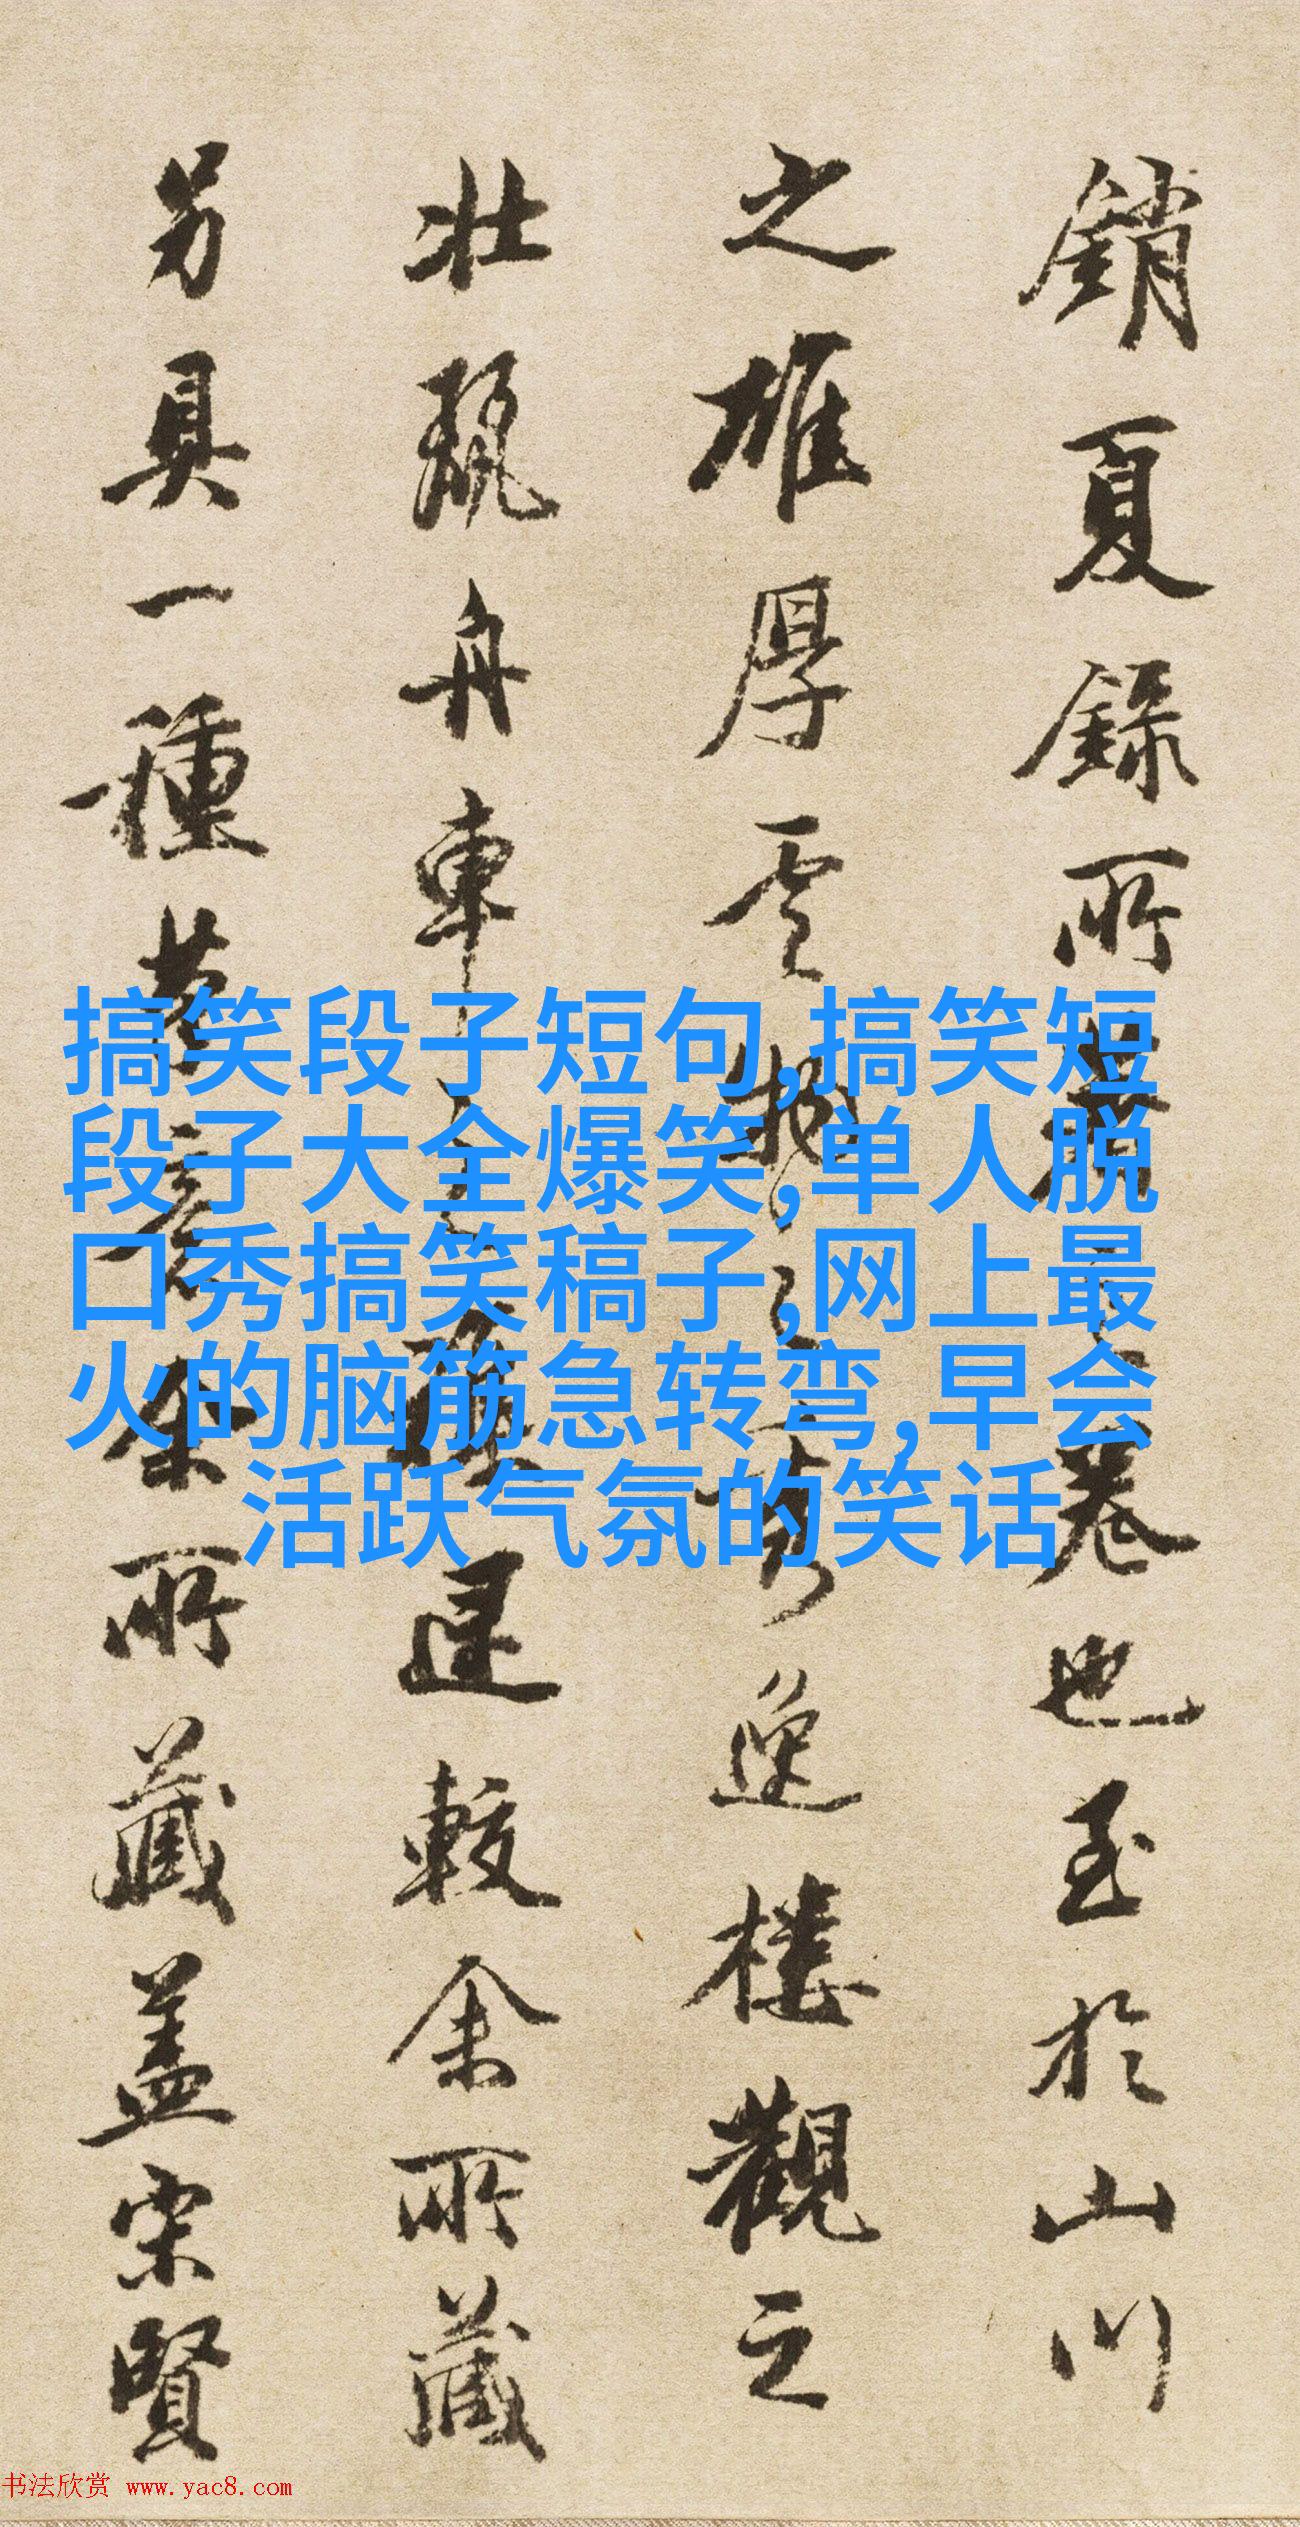 銷夏録所著之卷也至於山川
之雄厚雲物之清逸樓觀之
壯麗舟車之
遅較余所藏
另具一種
余所藏蓋宋賢
搞笑段子短句,搞笑短
段子大全爆笑,单人脱
口秀搞笑稿子,网上最
火的脑筋急转弯,早会
活跃气氛的笑话
书法欣赏 www.yac8.com